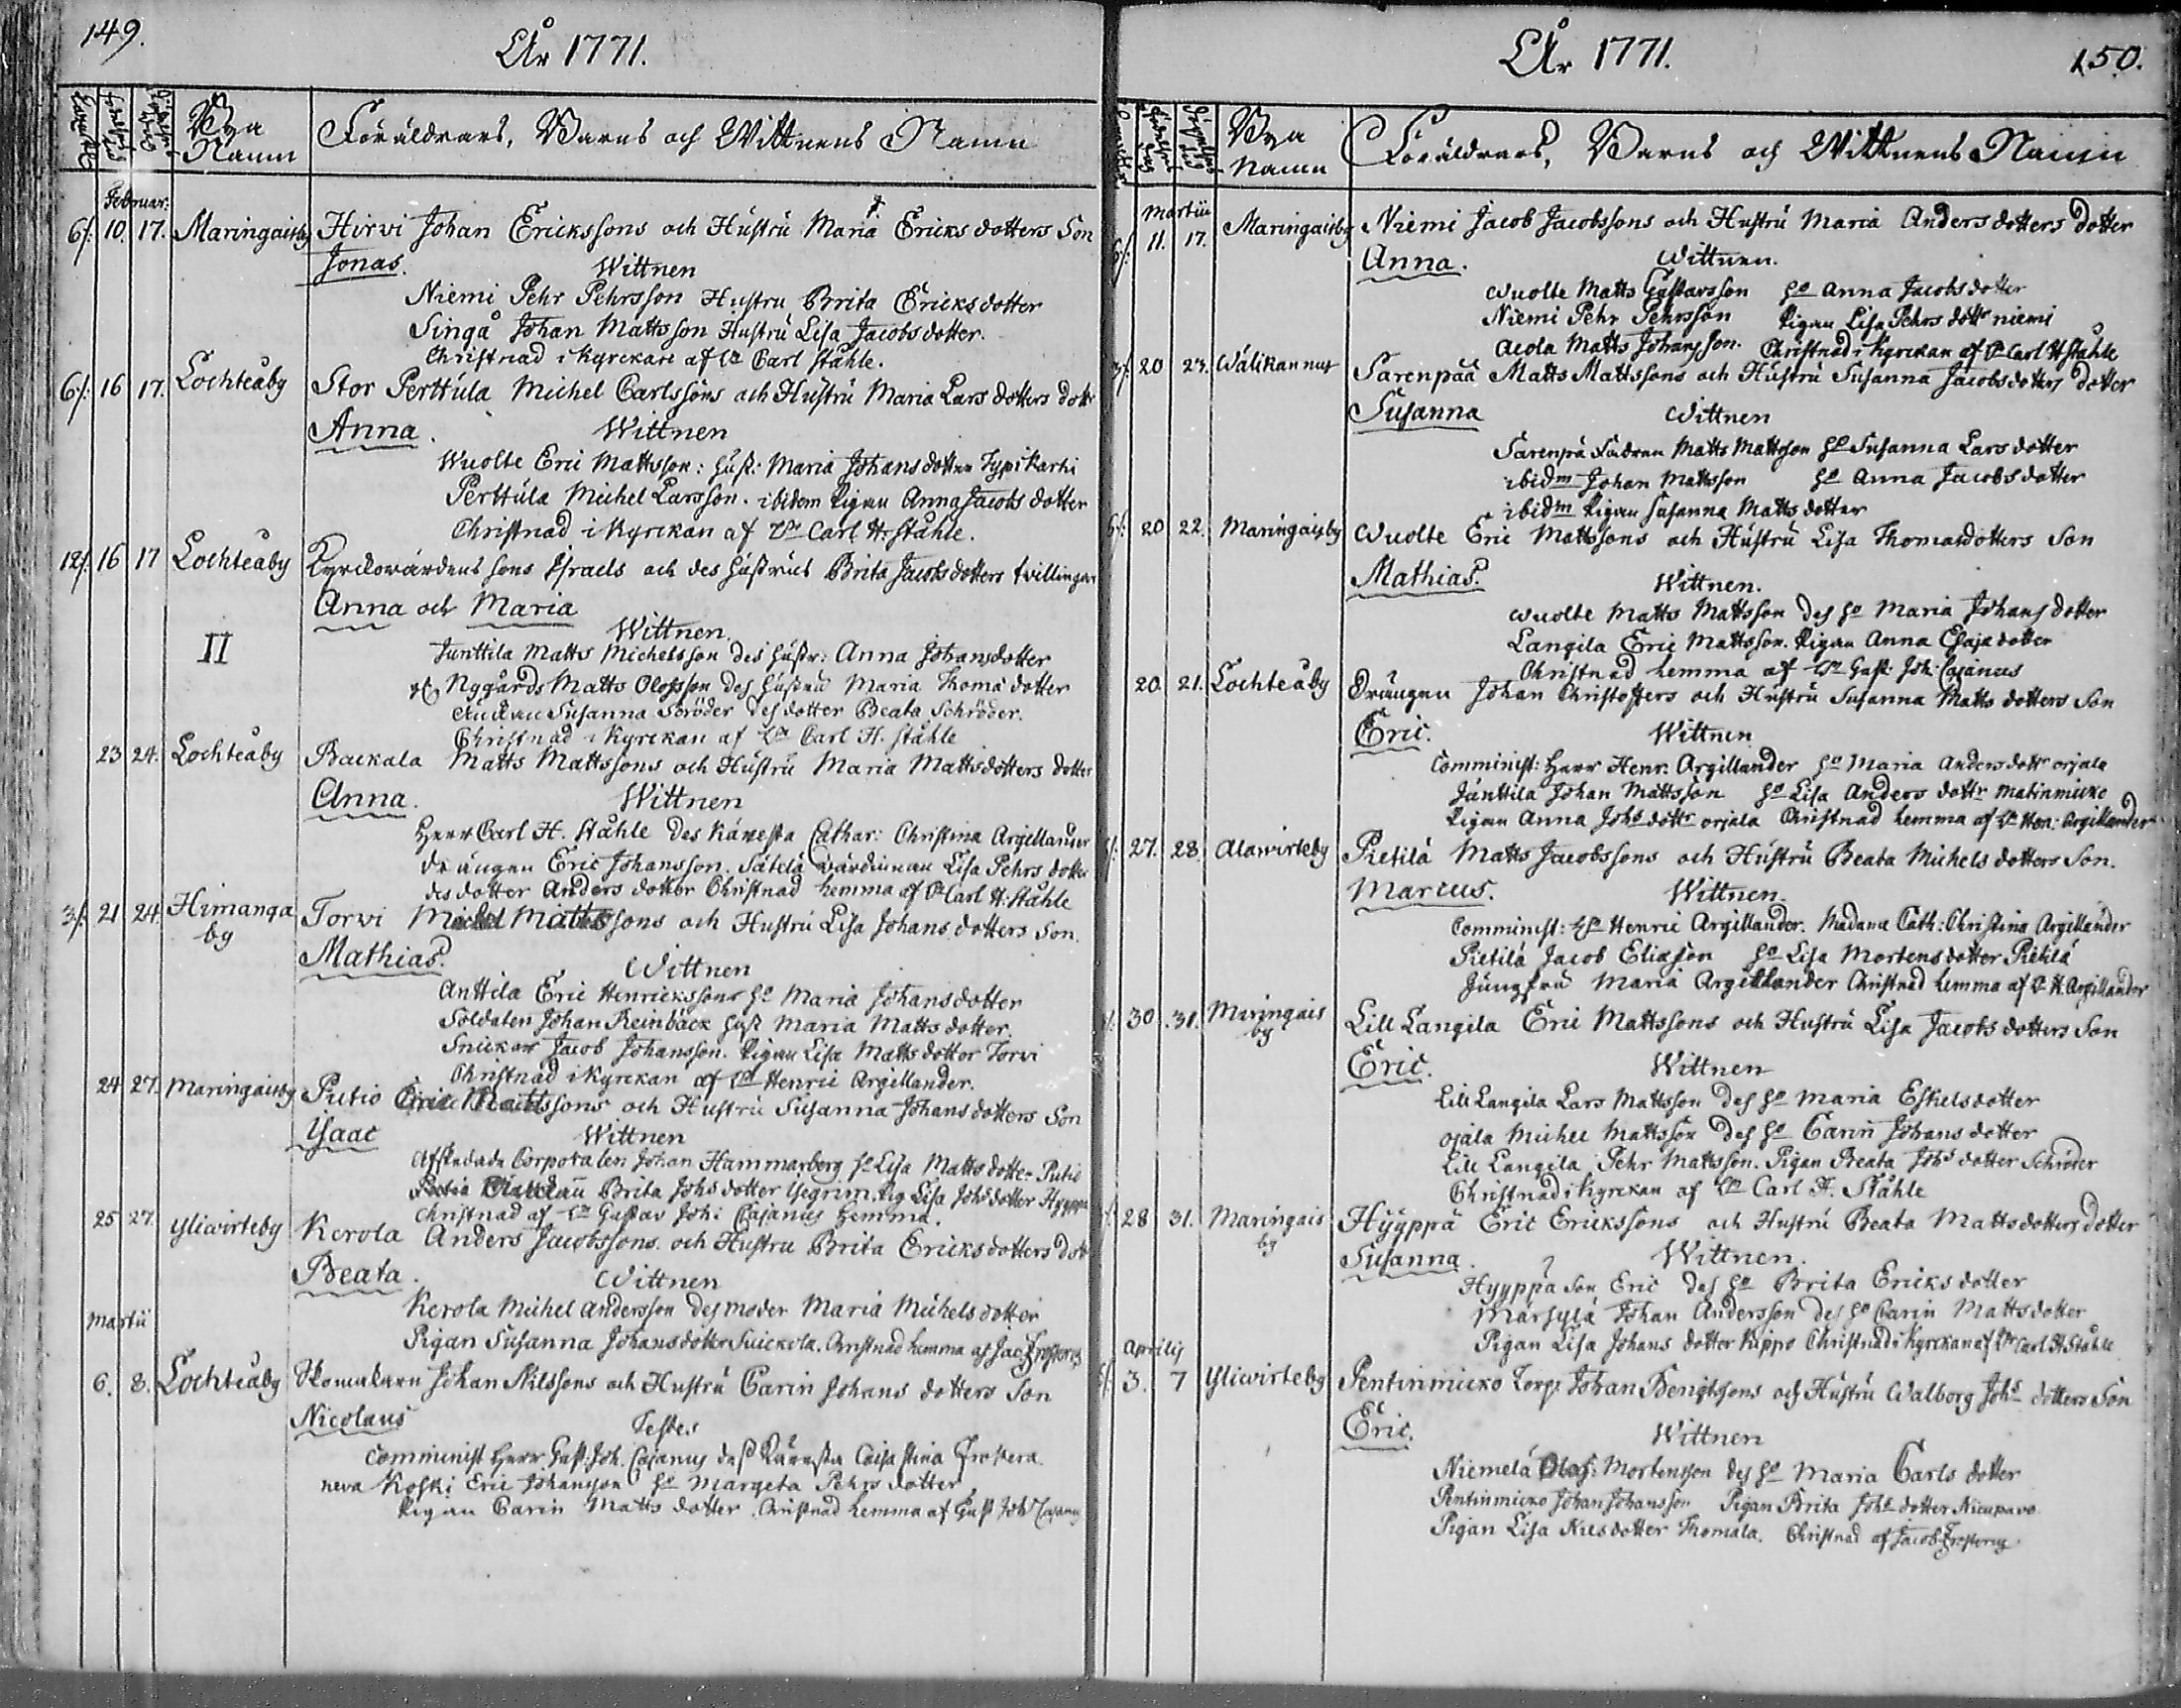 149.
År 1771.
Bya Namn
Föräldrars, Barns och Wittnens Namn
Februar:
6/: 10. 17. Maringaisby Hirwi Johan Erickssons och Hustru Maria Ericks dotters Son
Jonas. Wittnen
Niemi Pehr Pehrsson Hustru Brita Ericks dotter
Singå Johan Mattsson Hustru Lisa Jacobs dotter.
Christnad i Kyrckan af Carl Ståhle.
6/: 16 17. Lochteåby Stor Perttula Michel Carlssons och Hustru Maria Lars dotters dott
Anna. Wittnen
Wuolte Eric Mattsson: Hust: Maria Johans dotter Typikarhi
Perttula Michel Larsson. ibidem Pigan Anna Jacobs dotter
Christnad i Kyrckan af Carl H. Ståhle.
12/: 16 17 Lochteåby Kyrckowärdens sons Israels och des hustrus Brita Jacobs dotters tvillingar
Anna och Maria
II
Wittnen.
Junttila Matts Michelsson des hustr: Anna Johansdotter
Nygårds Matts Olofsson des hustru Maria Thomä dotter
Enkan Susanna Schröder des dotter Beata Schröder.
Christnad i Kyrckan af Carl H. Ståhle
23 24. Lochteåby Backala Matts Mattssons och Hustru Maria Mattsdotters dotter
Anna. Wittnen
Herr Carl H. Ståhle des käresta Cathar: Christina Argillander
drängen Eric Johansson. Sätelä wärdinnan Lisa Pehrs dotter
des dotter Anders dotter Christnad hemma af Carl H. Ståhle
3/: 21 24. Himanga by Torvi Mattssons och Hustru Lisa Johans dotters Son.
Mathias. Wittnen
Anttila Eric Henrickssons Maria Johansdotter
Soldaten Johan Reinbäck hust Maria Matts dotter.
Snickar Jacob Johansson. Pigan Lisa Matts dotter Torvi
Christnad i Kyrckan af Henric Argillander.
24 27. Maringaisby Putio Eric Mattssons och Hustru Susanna Johans dotters Son
Isaac Wittnen
Afskedade Corporalen Johan Hammarberg Lisa Matts dotter Putio
Brita Johs dotter Pig Lisa Johs dotter Hyyppä
Christnad af Gustav Joh: Cajanus hemma.
25 27. Yliwirteby Kerola Anders Jacobssons och Hustru Brita Ericks dotters dott
Beata. Wittnen
Kerola Michel Andersson des moder Maria Michels dotter
Pigan Susanna Johans dotter Suickola. Christnad hemma af Jac. Frosterus
Martii
6. 8. Lochteåby Skomakarn Johan Nilssons och Hustru Carin Johans dotters Son
Nicolaus Testes
Comminist Herr Gust: Joh. Cajanus des käresta Caisa Stina Frostera.
neva Koski Eric Johansson Margeta Pehrs dotter
Pigan Carin Matts dotter. Christnad hemma af Gust Joh Cajanus
År 1771.
150.
Bya Namn
Föräldrars, Barns och Wittnens Namn
Martii
6/: 11. 17. Maringaisby Niemi Jacob Jacobssons och Hustru Maria Anders dotters dotter
Anna. Wittnen.
Wuolte Matts Gustavsson Ho Anna Jacobs dotter
Niemi Pehr Pehrsson Pigan Lisa Pehrs dottr niemi
Matts Johansson. Christnad i Kyrckan af Carl H Ståhle
3/: 20 23. Wälikannus Sarenpää Matts Mattssons och Hustru Susanna Jacobsdotters dotter
Susanna Wittnen
Sarenpä Fadren Matts Mattsson Ho Susanna Lars dotter
ibidm Johan Mattsson Ho Anna Jacobs dotter
ibidm Pigan Susanna Matts dotter
6/: 20 22. Maringaisby Wuolte Eric Mattssons och Hustru Lisa Thomasdotters Son
Mathias. Wittnen.
Wuolte Matts Mattsson des Ho Maria Johans dotter
Langila Eric Mattsson. Pigan Anna Esaja dotter
Christnad hemma af Gust. Joh. Cajanus
20. 21. Lochteåby Drängen Johan Christoffers och Hustru Susanna Matts dotters Son
Eric. Wittnen
Comminist: Herr Henr: Argillander Ho Maria Anders dottr orjala
Junttila Johan Mattsson Ho Lisa Anders dottr Matinmicko
Pigan Anna Johs dottr orjala Christnad hemma af Hen: Argillander
27. 28 Alawirteby Pietilä Matts Jacobssons och Hustru Beata Michels dotters Son.
Marcus. Wittnen.
Comminist: Henric Argillander. Madame Cath: Christina Argillander
Pietilä Jacob Eliasson Ho Lisa Mortens dotter Pietilä
Jungfru Maria Argillander Christnad hemma af H. Argillander
30 31. Maringais by Lill Langila Eric Mattssons och Hustru Lisa Jacobs dotters Son
Eric. Wittnen
Lill Langila Lars Mattsson des Ho Maria Eskelsdotter
ojala Michel Mattsson des Ho Carin Johans dotter
Lill Langila Pehr Mattsson. Pigan Beata Johs dotter Schröder
Christnad i Kyrckan af Carl H. Ståhle
28 31. Maringais by Hyyppä Eric Erickssons och Hustru Beata Mattsdotters dotter
Susanna. Wittnen.
Hyyppä Son Eric des Ho Brita Ericks dotter
Märsylä Johan Andersson des Ho Carin Mattsdotter
Pigan Lisa Johans dotter Kippo Christnad i Kyrckan af Carl H Ståhle
Aprilis
3. 7 Yliwirteby Pentinmicko Torp: Johan Bengtssons och Hustru Walborg Johs dotters Son
Eric. Wittnen
Niemelä Olof: Mortensson des Ho Maria Carls dotter
Pentinmicko Johan Johansson Pigan Brita Johs dotter
Pigan Lisa Nils dotter Thomala. Christnad af Jacob Frosterus